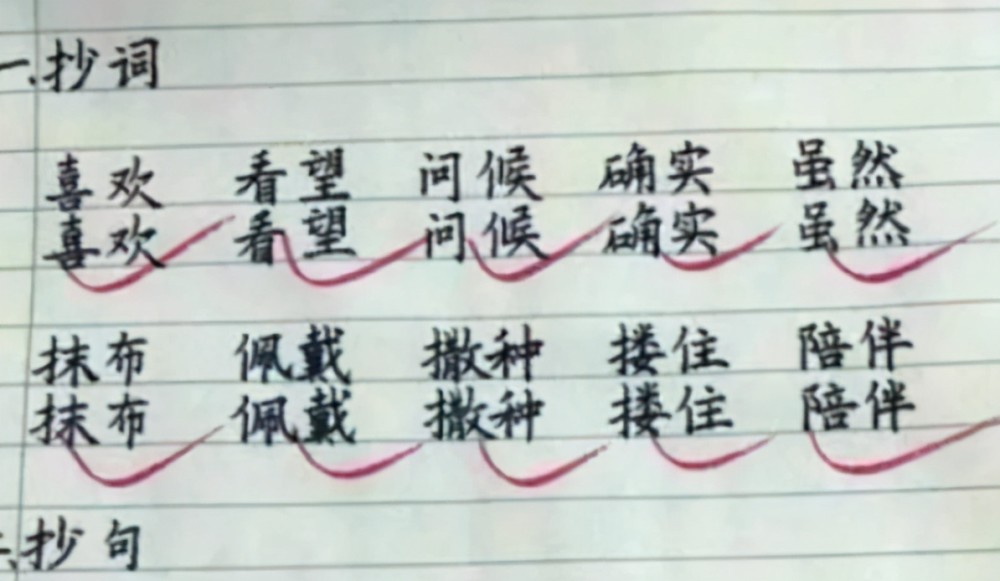 一、抄词
喜欢 看望 问候 确实 虽然
喜欢 看望 问候 确实 虽然
抹布 佩戴 撒种 搂住 陪伴
抹布 佩戴 撒种 搂住 陪伴
二、抄句